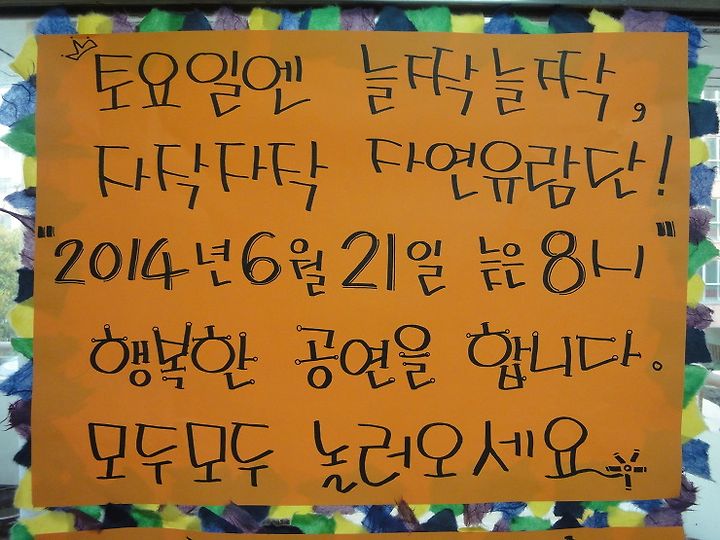 토요일엔 늘짝늘짝,
자닥자닥 자연유람단!
"2014년 6월 21일 늦은 8시"
행복한 공연을 합니다.
모두모두 놀러오세요